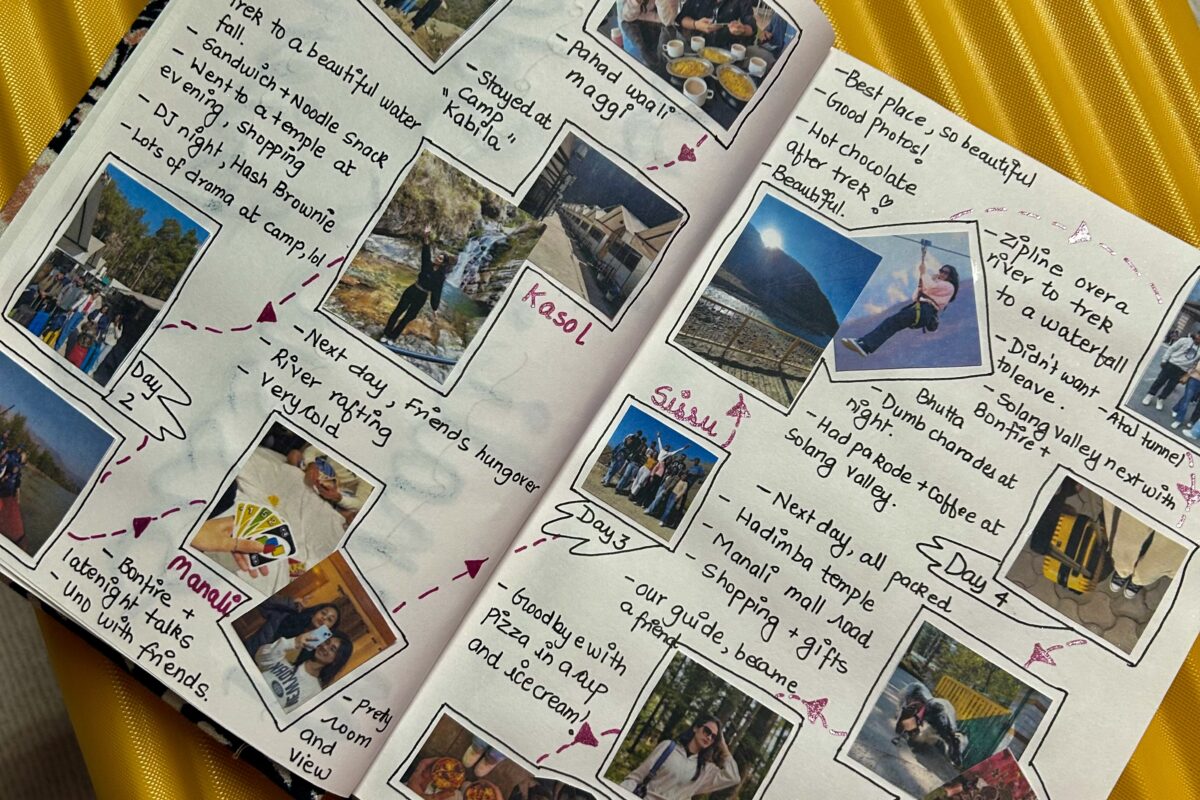 Trek to a beautiful water
fall.
- Sandwich + Noodle snack
- Went to a temple at
evening, shopping
- DJ night, Hash Brownie
- Lots of drama at camp, lol
- Stayed at
"camp
Kabila"
- Pahad waali
maggi
Kasol
Day
2
- Next day, Friends hungover
- River rafting
- very cold
Manali
- Bonfire +
latenight talks
- UNO with friends.
- Prety
room
and
view
- Best place, so beautiful
- Good Photos!
- Hot chocolate
after trek
- Beautiful.
- Zipline over a
river to trek
to a waterfall
- Didn't want
to leave.
- Atal tunnel
- Solang valley next with
Bonfire +
Bhutta
- Dumb charades at
night.
- Had pakode + coffee at
solang valley.
Sissu
Day 3
- Next day, all packed
- Hadimba temple
- Manali mall road
- Shopping + gifts
Day 4
- our guide, became
a friend
- Goodbye with
pizza in a cup
and ice cream